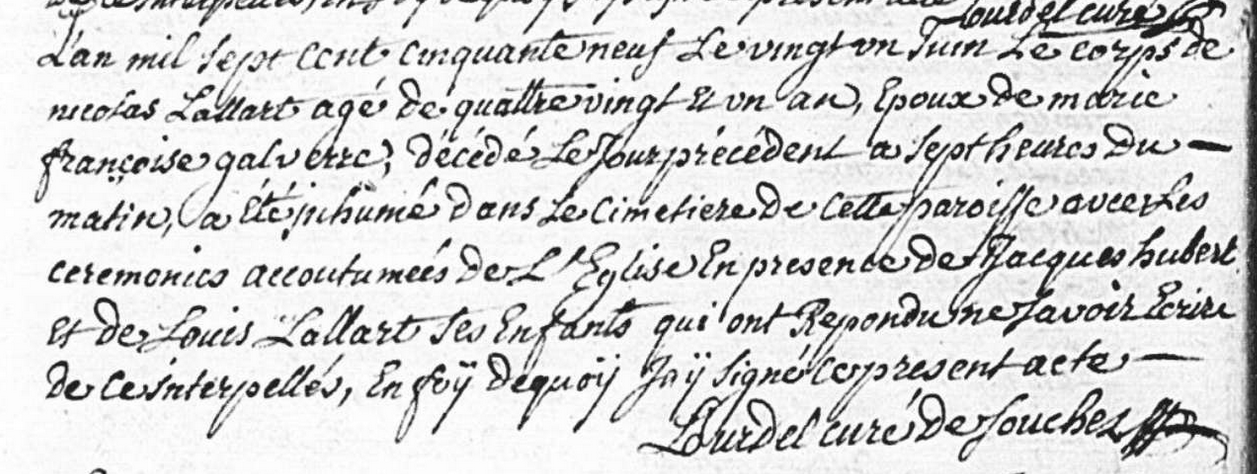 Lourdel curé
L'an mil sept cent cinquante neuf Le vingt un Juin Le corps de
nicolas Lallart agé de quattre vingt Et un an, Epoux de marie
françoise galverre, décédé Le Jour précédent a sept heures Du
matin, a été inhumé dans Le Cimetiere de cette paroisse avec Les
ceremonies accoutumées de L'Eglise En presence de Jacques hubert
Et de Louis Lallart ses Enfants qui ont Repondu ne savoir Ecrire
de ce interpellés, En foÿ dequoÿ Jaÿ signé ce present acte
Lourdel curé de souchez